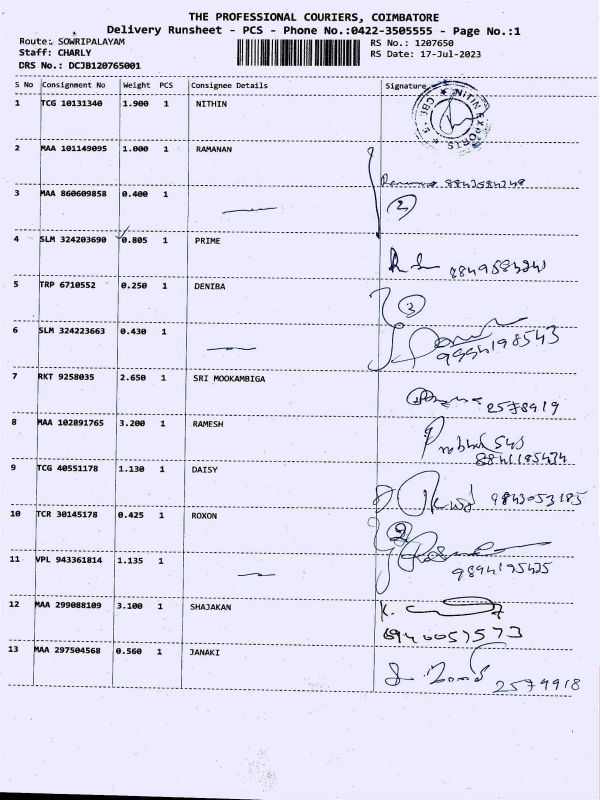 THE PROFESSIONAL COURIERS, COIMBATORE
Delivery Runsheet - PCS - Phone No.:0422-3505555 - Page No.:1
Route: SOWRIPALAYAM RS No.: 1207650
Staff: CHARLY RS Date: 17-Jul-2023
DRS No.: DCJB120765001
S No Consignment No Weight PCS Consignee Details Signature
1 TCG 10131340 1.900 1 NITHIN
2 MAA 101149095 1.000 1 RAMANAN
3 MAA 860609858 0.400 1
2
4 SLM 324203690 0.805 1 PRIME
5 TRP 6710552 0.250 1 DENIBA
3
6 SLM 324223663 0.430 1
7 RKT 9258035 2.650 1 SRI MOOKAMBIGA
2578919
8 MAA 102891765 3.200 1 RAMESH
9 TCG 40551178 1.130 1 DAISY
9843053185
10 TCR 30145178 0.425 1 ROXON
2
11 VPL 943361814 1.135 1
12 MAA 299088109 3.100 1 SHAJAKAN
K.
13 MAA 297504568 0.560 1 JANAKI
2579918